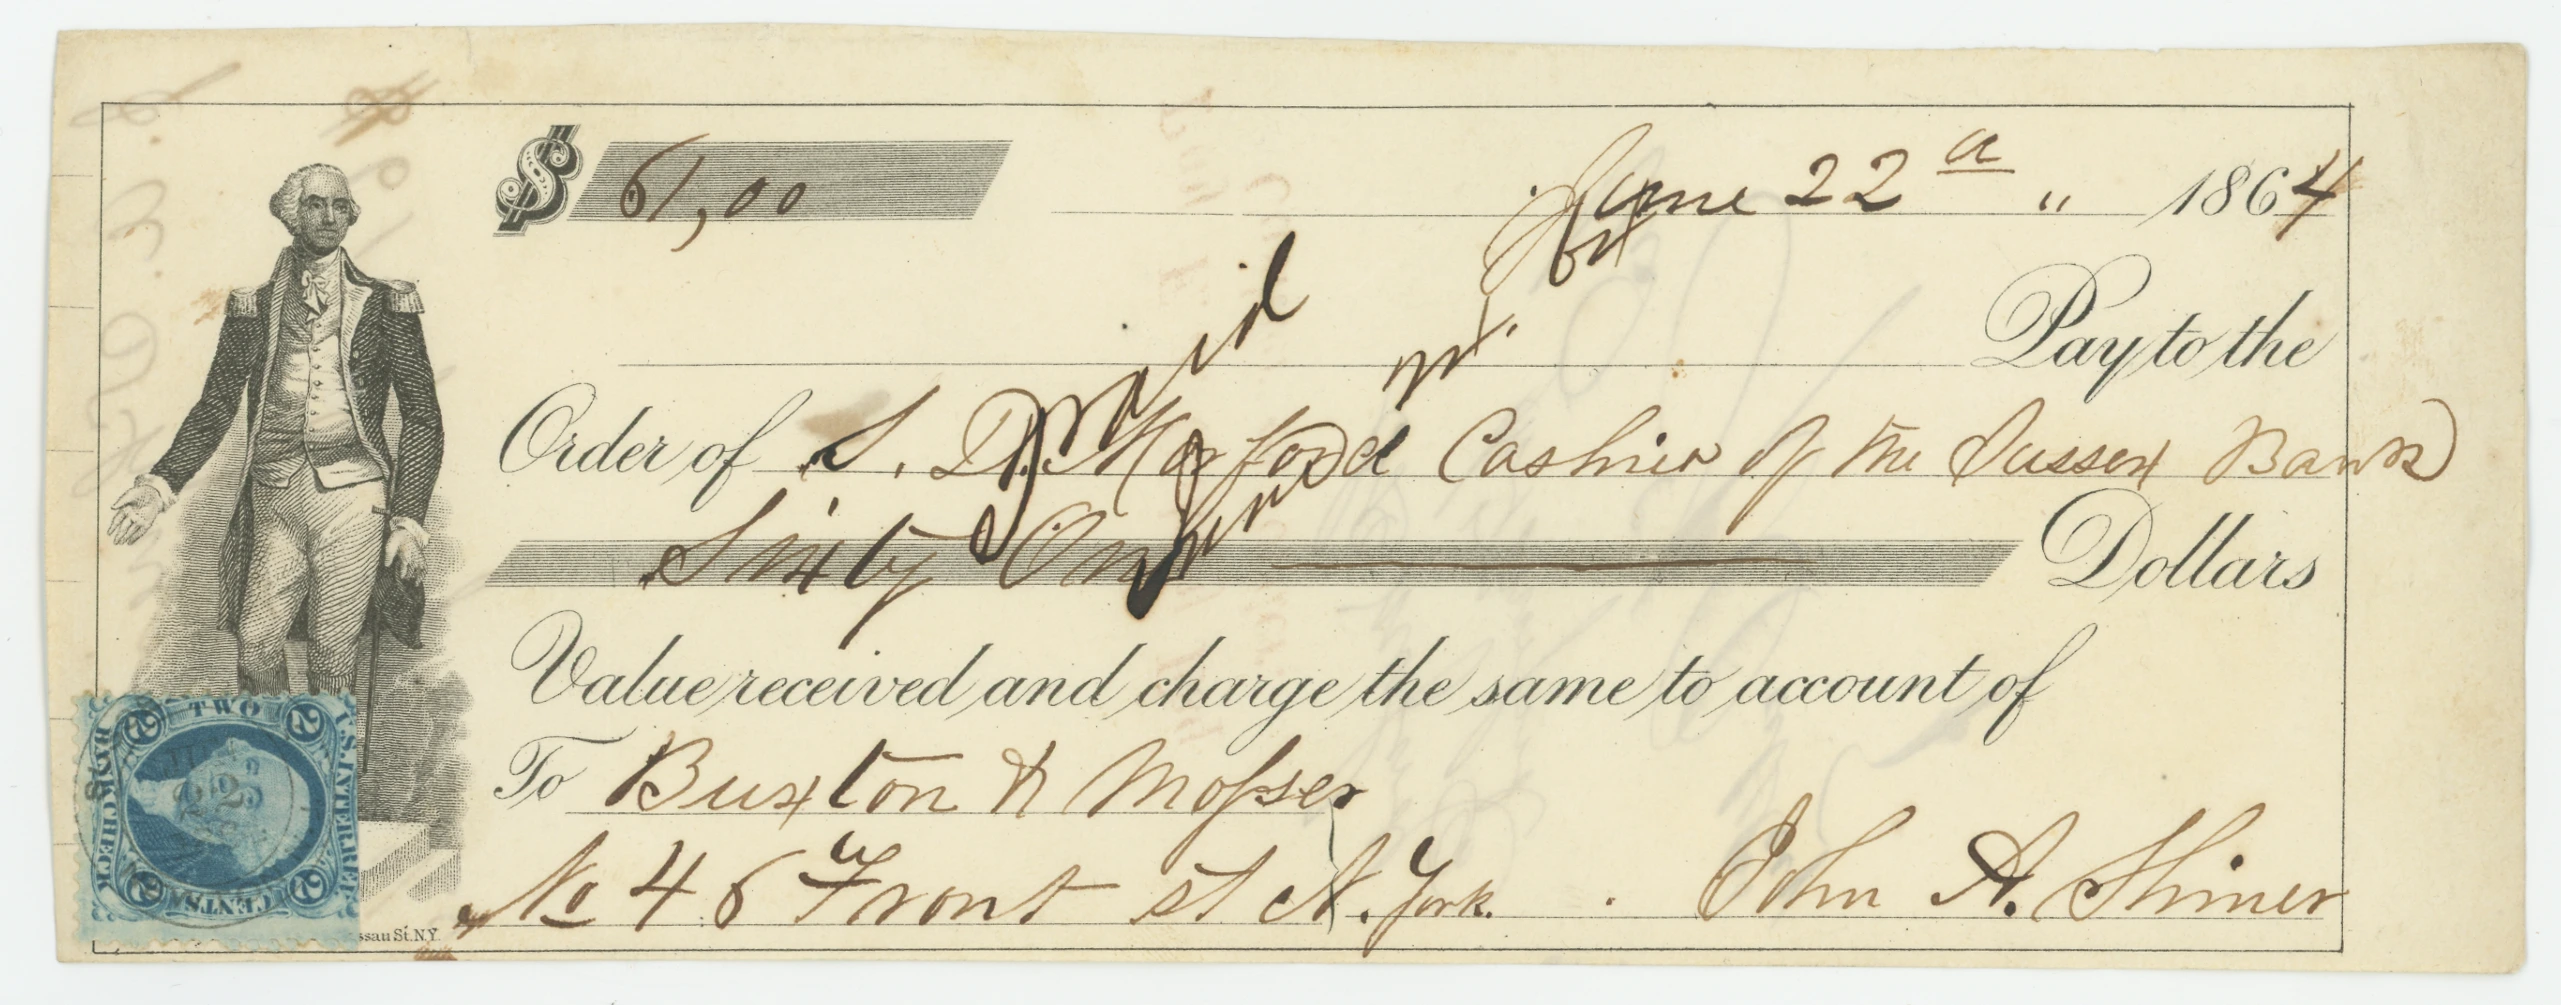 $ 61,00
June 22 " 1864
Pay to the
Order of S. D. Morford Cashier of the Sussex Bank
Sixty One Dollars
Value received and charge the same to account of
To Buxton & Mosser
No 46 Front st N. York. John A. Shiner
U.S. INTER. REV.
TWO
BANK CHECK
CENTS
2 2 2 2
ssau St. N.Y.